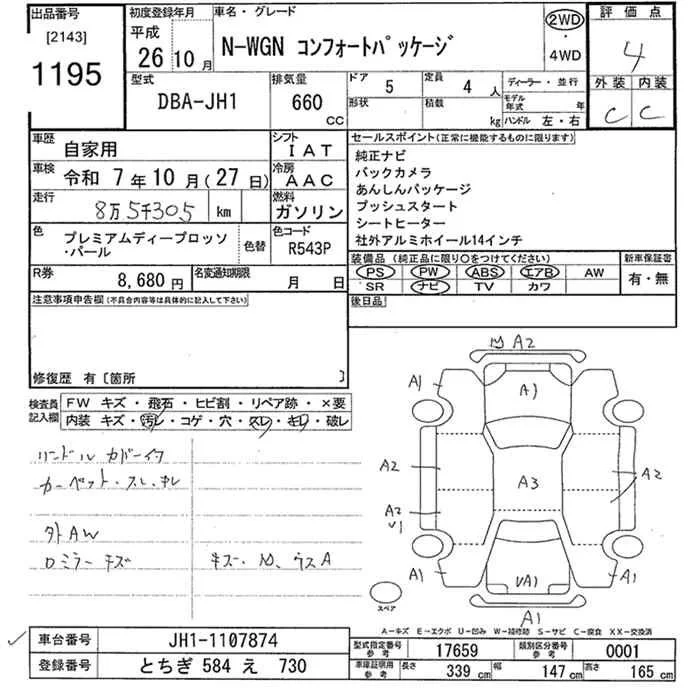 出品番号
[2143]
1195
初度登録年月
平成
26 10 月
車名・グレード
N-WGN コンフォートパッケージ
2WD
・
4WD
評価点
4
外装 内装
C C
型式
DBA-JH1
排気量
660
CC
ドア
5
定員
4 人
形状
積載
kg
ディーラー・並行
モデル年式 年
ハンドル 左・右
車歴
自家用
シフト
IAT
車検
令和 7 年 10 月 (27 日)
冷房
AAC
走行
8万5千305 km
燃料
ガソリン
色
プレミアムディープロッソ
・パール
色替
色コード
R543P
R券
8,680 円
名変通知期限
月 日
セールスポイント(正常に機能するものに限ります)
純正ナビ
バックカメラ
あんしんパッケージ
プッシュスタート
シートヒーター
社外アルミホイール14インチ
装備品 (純正品に限り〇をつけてください)
PS PW ABS エアB AW
SR ナビ TV カワ
新車保証書
有・無
後日品
注意事項申告欄(不具合内容等は具体的に記入して下さい)
修復歴 有〔箇所 〕
検査員
記入欄
FW キズ・飛石・ヒビ割・リペア跡・×要
内装 キズ・汚レ・コゲ・穴・スレ・キレ・破レ
ハンドルカバーイタ
カーペット・スレ・キレ
外AW
ロミラーキズ
キズ・凹、ウスA
凹 A2
A1
A1
A2
A3
A2
A2
U1
A1
UA1
A1
A1
スペア
A-キズ E-エクボ U-凹み W-補修跡 S-サビ C-腐食 XX-交換済
車台番号
JH1-1107874
登録番号
とちぎ 584 え 730
型式指定番号
参考
17659
類別区分番号
参考
0001
車庫証明用
参考
長さ 339 cm
幅 147 cm
高さ 165 cm